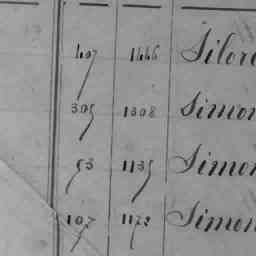 407 1446 Silore
305 1308 Simon
53 1135 Simon
107 1172 Simon